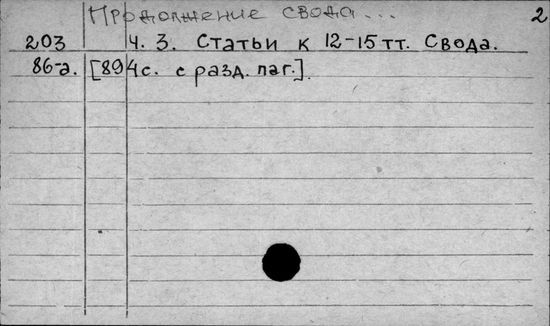 Продолжение свода... 2
203 Ч. 3. Статьи к 12-15 тт. Свода.
86-а. [894 с. с разд. паг.].